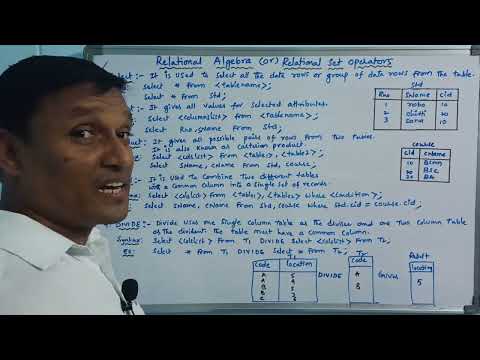 Relational Algebra (or) Relational Set operators
:- It is used to Select all the data rows or group of data rows from the table.
Select * from <tablename>;
Select * from Std;
:- It gives all values for Selected attributes.
Select <columnlist> from <tablename>;
Select Rno, sname from Std;
:- It gives all possible pairs of rows from two tables.
It is also known as Cartesian product.
Select <colslist> from <table1>, <table2>;
Select Sname, cname from std, course;
:- It is used to Combine Two different tables
with a Common Column into a Single Set of records.
Select <colslist> from <table1>, <table2> where <condition>;
Select Sname, cname from Std, course where Std.cid = course.cid;
DIVIDE :- Divide uses one Single Column table as the divisor and one Two Column Table
as the dividend. The table must have a Common Column.
Syntax: Select <colslist> from T1 DIVIDE Select <colslist> from T2;
Ex: Select * from T1 DIVIDE Select * from T2;
Std
Rno Sname Cid
1 10
2 20
3 Sana 10
course
Cid cname
10 Bcom
20 Bsc
30 BA
T1
code location
A 5
DIVIDE
T2
code
A
B
Gives
Result
location
5